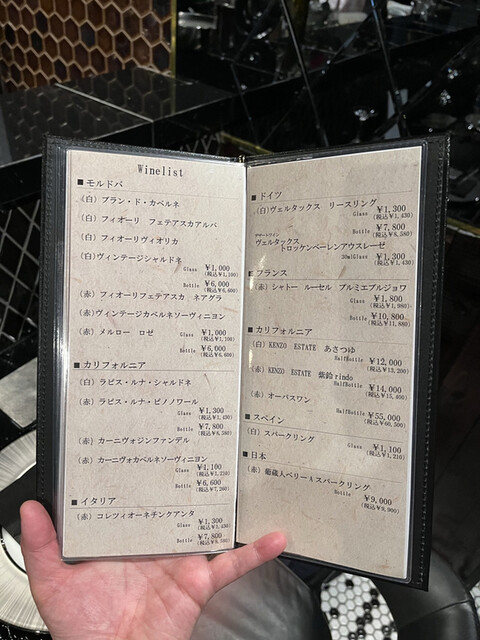 Winelist
■モルドバ
(白) ブラン・ド・カベルネ
(白) フィオーリ フェテアスカアルバ
(白) フィオーリヴィオリカ
(白)ヴィンテージシャルドネ
Glass ￥1,000
(税込￥1,100)
Bottle ￥6,000
(税込￥6,600)
(赤) フィオーリフェテアスカ ネアグラ
(赤)ヴィンテージカベルネソーヴィニヨン
(赤) メルロー ロゼ Glass ￥1,000
(税込￥1,100)
Bottle ￥6,000
(税込￥6,600)
■カリフォルニア
(白) ラピス・ルナ・シャルドネ
(赤) ラピス・ルナ・ピノノワール
Glass ￥1,300
(税込￥1,430)
Bottle ￥7,800
(税込￥8,580)
(赤) カーニヴォジンファンデル
(赤) カーニヴォカベルネソーヴィニヨン
Glass ￥1,100
(税込￥1,210)
Bottle ￥6,600
(税込￥7,260)
■イタリア
(赤) コレツィオーネチンクアンタ
Glass ￥1,300
(税込￥1,430)
Bottle ￥7,800
(税込￥8,580)
■ドイツ
(白)ヴェルタックス リースリング
Glass ￥1,300
(税込￥1,430)
Bottle ￥7,800
(税込￥8,580)
デザートワイン
ヴェルタックス
トロッケンベーレンアウスレーゼ
30mlGlass ￥1,300
(税込￥1,430)
■フランス
(赤) シャトー ルーセル プルミエブルジョワ
Glass ￥1,800
(税込￥1,980)
Bottle ￥10,800
(税込￥11,880)
■カリフォルニア
(白) KENZO ESTATE あさつゆ
HalfBottle ￥12,000
(税込￥13,200)
(赤) KENZO ESTATE 紫鈴rindo
HalfBottle ￥14,000
(税込￥15,400)
(赤) オーパスワン
HalfBottle ￥55,000
(税込￥60,500)
■スペイン
(白) スパークリング
Glass ￥1,100
(税込￥1,210)
■日本
(赤) 葡蔵人ベリーAスパークリング
Bottle ￥9,000
(税込￥9,900)